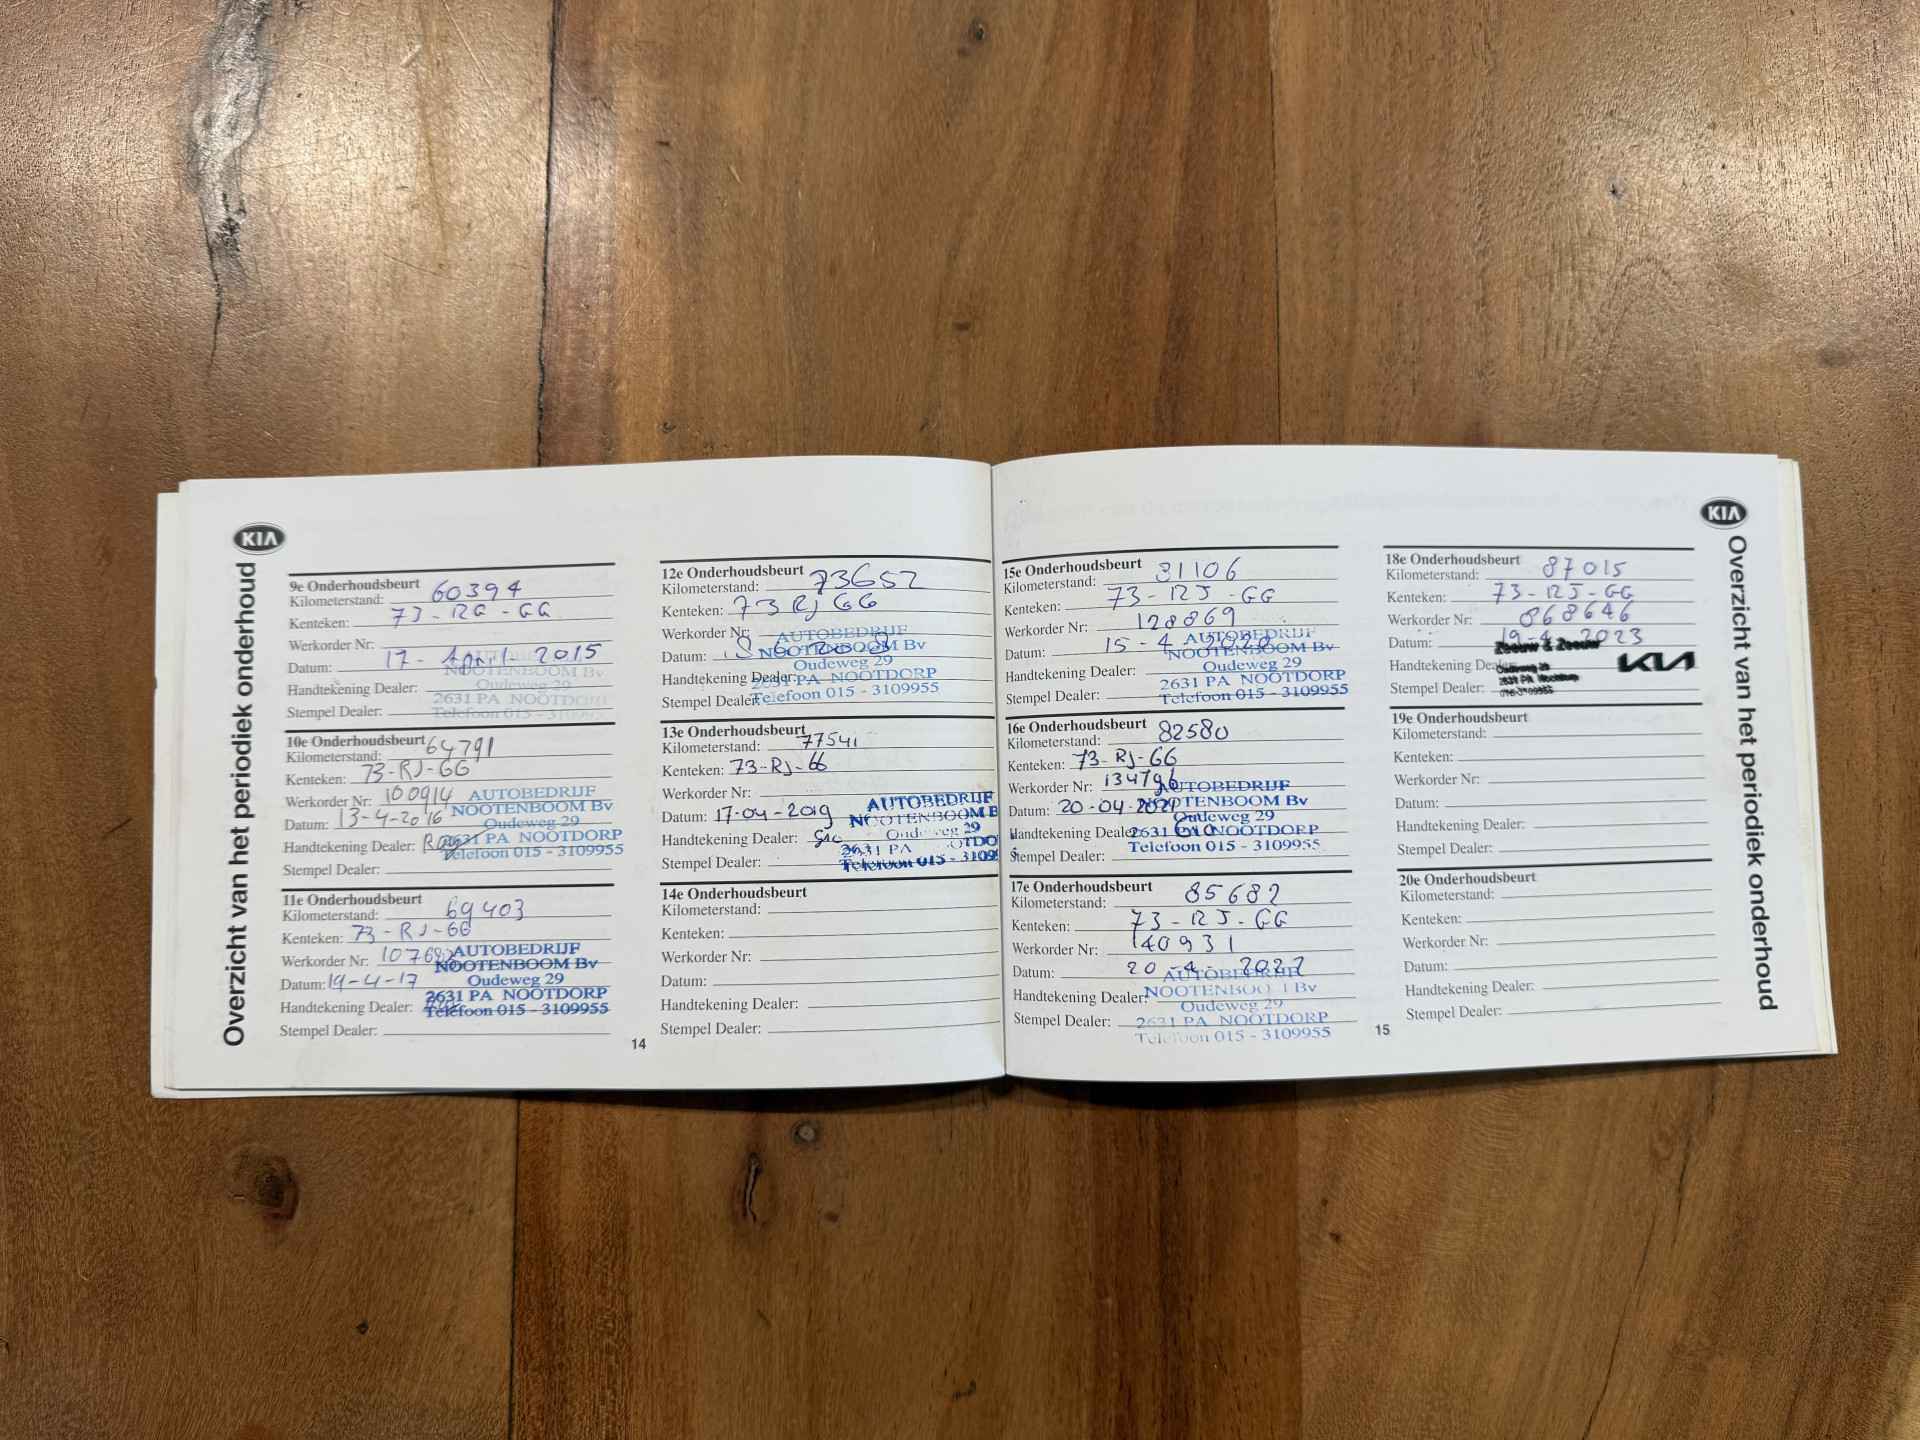 KIA
Overzicht van het periodiek onderhoud
9e Onderhoudsbeurt
Kilometerstand: 60394
Kenteken: 73-RG-GG
Werkorder Nr:
Datum: 17-April-2015
NOOTENBOOM Bv
Handtekening Dealer:
Oudeweg 29
2631 PA NOOTDORP
Stempel Dealer:
Telefoon 015 - 3109955
10e Onderhoudsbeurt
Kilometerstand: 64791
Kenteken: 73-RJ-GG
Werkorder Nr: 100914
AUTOBEDRIJF
NOOTENBOOM Bv
Datum: 13-4-2016
Oudeweg 29
Handtekening Dealer:
2631 PA NOOTDORP
Telefoon 015 - 3109955
Stempel Dealer:
11e Onderhoudsbeurt
Kilometerstand: 69403
Kenteken: 73-RJ-GG
Werkorder Nr:
AUTOBEDRIJF
NOOTENBOOM Bv
Datum: 19-4-17
Oudeweg 29
2631 PA NOOTDORP
Handtekening Dealer:
Telefoon 015 - 3109955
Stempel Dealer:
12e Onderhoudsbeurt
Kilometerstand: 73652
Kenteken: 73 RJ GG
Werkorder Nr:
AUTOBEDRIJF
NOOTENBOOM Bv
Datum:
Oudeweg 29
Handtekening Dealer:
2631 PA NOOTDORP
Stempel Dealer:
Telefoon 015 - 3109955
13e Onderhoudsbeurt
Kilometerstand: 77541
Kenteken: 73-RJ-GG
Werkorder Nr:
AUTOBEDRIJF
Datum: 17-04-2019
NOOTENBOOM B
Oudeweg 29
Handtekening Dealer:
2631 PA NOOTDO
Stempel Dealer:
Telefoon 015 - 3109
14e Onderhoudsbeurt
Kilometerstand:
Kenteken:
Werkorder Nr:
Datum:
Handtekening Dealer:
Stempel Dealer:
14
15e Onderhoudsbeurt
Kilometerstand: 81106
Kenteken: 73-RJ-GG
Werkorder Nr: 128869
AUTOBEDRIJF
Datum: 15-4-2020
NOOTENBOOM Bv
Oudeweg 29
Handtekening Dealer:
2631 PA NOOTDORP
Stempel Dealer:
Telefoon 015 - 3109955
16e Onderhoudsbeurt
Kilometerstand: 82580
Kenteken: 73-RJ-GG
Werkorder Nr: 134796
AUTOBEDRIJF
Datum: 20-04-2021
NOOTENBOOM Bv
Oudeweg 29
Handtekening Dealer:
2631 PA NOOTDORP
Telefoon 015 - 3109955
Stempel Dealer:
17e Onderhoudsbeurt
Kilometerstand: 85682
Kenteken: 73-RJ-GG
Werkorder Nr: 140931
Datum: 20-4-2022
AUTOBEDRIJF
NOOTENBOOM Bv
Handtekening Dealer:
Oudeweg 29
Stempel Dealer:
2631 PA NOOTDORP
Telefoon 015 - 3109955
18e Onderhoudsbeurt
Kilometerstand: 87015
Kenteken: 73-RJ-GG
Werkorder Nr: 868646
Datum: 19-4-2023
Zeeuw & Zeeuw
KIA
Handtekening Dealer:
Oudeweg 29
2631 PA Nootdorp
Stempel Dealer:
015-3109955
19e Onderhoudsbeurt
Kilometerstand:
Kenteken:
Werkorder Nr:
Datum:
Handtekening Dealer:
Stempel Dealer:
20e Onderhoudsbeurt
Kilometerstand:
Kenteken:
Werkorder Nr:
Datum:
Handtekening Dealer:
Stempel Dealer:
15
KIA
Overzicht van het periodiek onderhoud